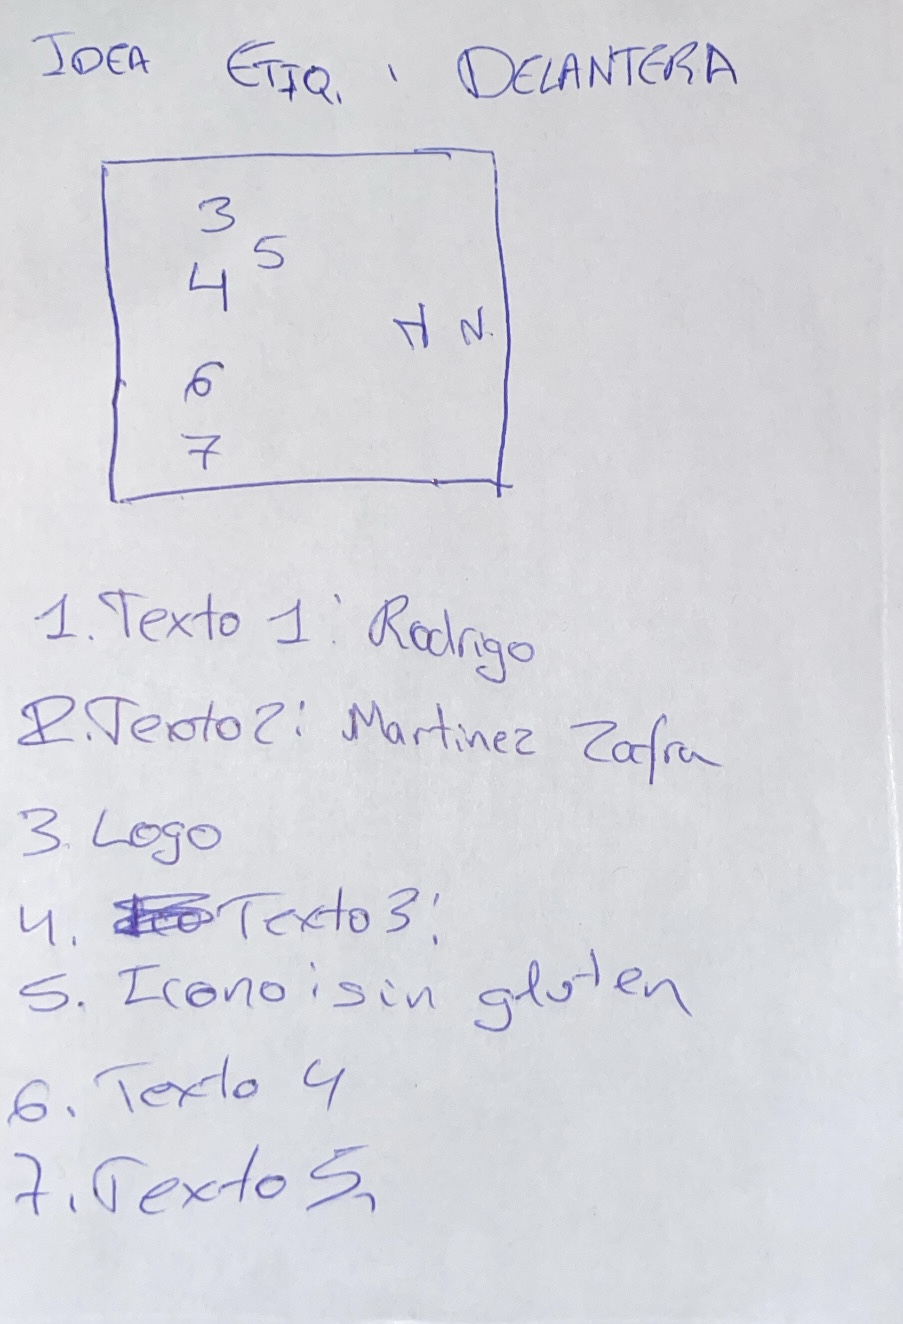 IDEA ETIQ. DELANTERA
3
5
4
N.
6
7
1. Texto 1: Rodrigo
2. Texto 2: Martinez Zafra
3. Logo
4. Texto 3:
5. Icono: sin gluten
6. Texto 4
7. Texto 5